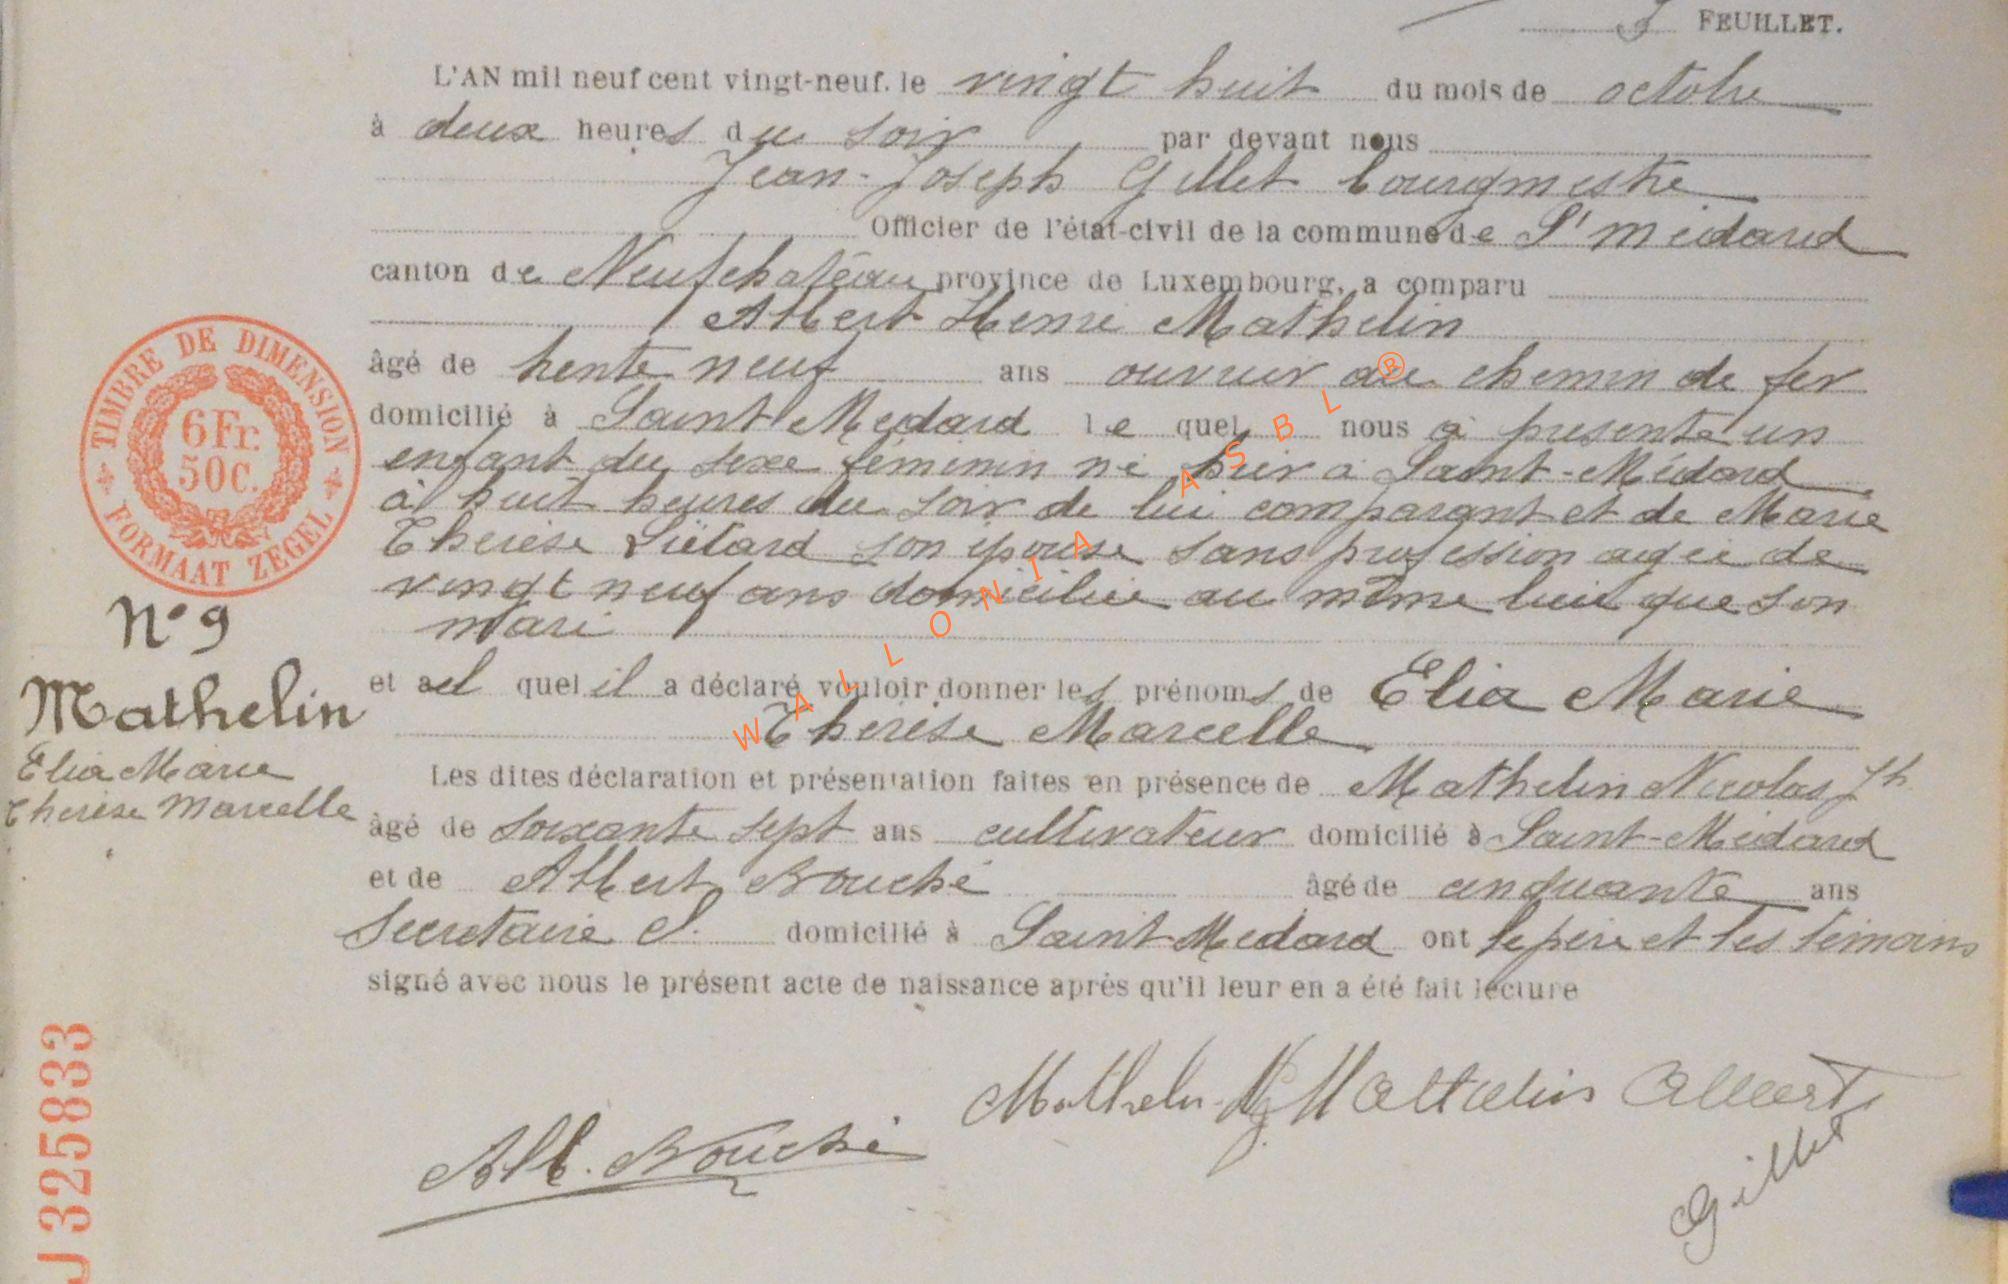 5 FEUILLET.
L'AN mil neuf cent vingt-neuf, le vingt huit du mois de octobre
à deux heures du soir par devant nous
Jean-Joseph Gillet bourgmestre
Officier de l'état-civil de la commune de St médard
canton de Neufchateau province de Luxembourg, a comparu
Albert Henri Mathelin
âgé de trente neuf ans ouvrier au chemin de fer
domicilié à Saint Médard le quel nous a présenté un
enfant du sexe féminin né hier à Saint-Médard
à huit heures du soir de lui comparant et de Marie
Thérèse Liétard son épouse sans profession agée de
vingt neuf ans domiciliée au même lieu que son
mari
et auquel il a déclaré vouloir donner les prénoms de Elia Marie
Thérèse Marcelle
Les dites déclaration et présentation faites en présence de Mathelin Nicolas Jh
âgé de soixante sept ans cultivateur domicilié à Saint-Médard
et de Albert Bouché âgé de cinquante ans
Secrétaire C. domicilié à Saint Médard ont le père et les témoins
signé avec nous le présent acte de naissance après qu'il leur en a été fait lecture
TIMBRE DE DIMENSION
6 Fr.
50 C.
FORMAAT ZEGEL
N° 9
Mathelin
Elia Marie
Thérèse Marcelle
J 325833
Alb. Bouché
Mathelin N J
Mathelin Albert
Gillet
WALLONIA ASBL®